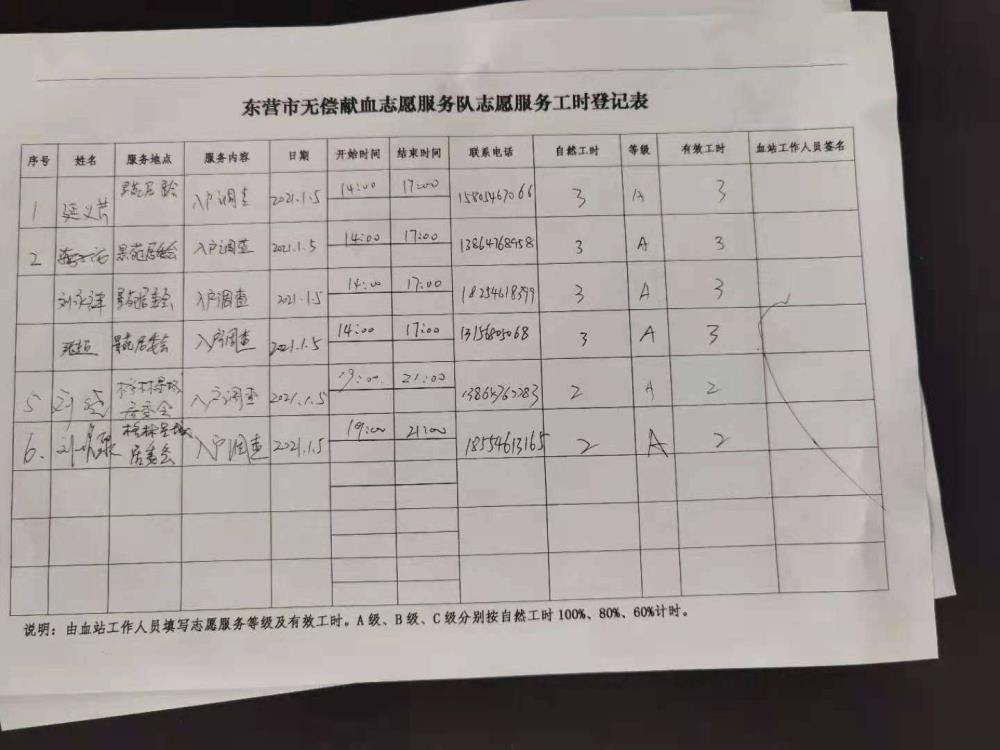 东营市无偿献血志愿服务队志愿服务工时登记表
序号 姓名 服务地点 服务内容 日期 开始时间 结束时间 联系电话 自然工时 等级 有效工时 血站工作人员签名
1 入户调查 2021.1.5 14:00 17:00 15805467066 3 A 3
2 景苑居委会 入户调查 2021.1.5 14:00 17:00 13864768958 3 A 3
景苑居委会 入户调查 2021.1.5 14:00 17:00 18254618399 3 A 3
景苑居委会 入户调查 2021.1.5 14:00 17:00 13156805068 3 A 3
5 入户调查 2021.1.5 19:00 21:00 2 A 2
居委会
6. 入户调查 2021.1.5 19:00 21:00 18554613165 2 A 2
居委会
说明：由血站工作人员填写志愿服务等级及有效工时。A级、B级、C级分别按自然工时100%、80%、60%计时。